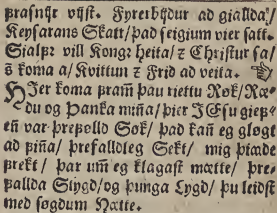 þrasnyr vijst. Fyrerbijdur ad giallda/
Keysarans Skatt/ það seigium vier satt.
Sialfr vill Kongr heita/ ⁊ Christur sa/
s̃ koma a/ Kvittun ⁊ Frid ad veita. ☞
HJer koma fram þau riettu Rök/ Ræ-
du og Þanka mijna/ þier JEsu gief-
en̄ var forefolld Sök/ það kan̄ eg gløgt
ad fijna/ prefalldleg Sekt/ mig þiade
frekt/ þar um̄ eg klagast mætte/ pre-
fallda Stygd/ og þunga Lygd/ þu leidst
med søgdum Hætte.